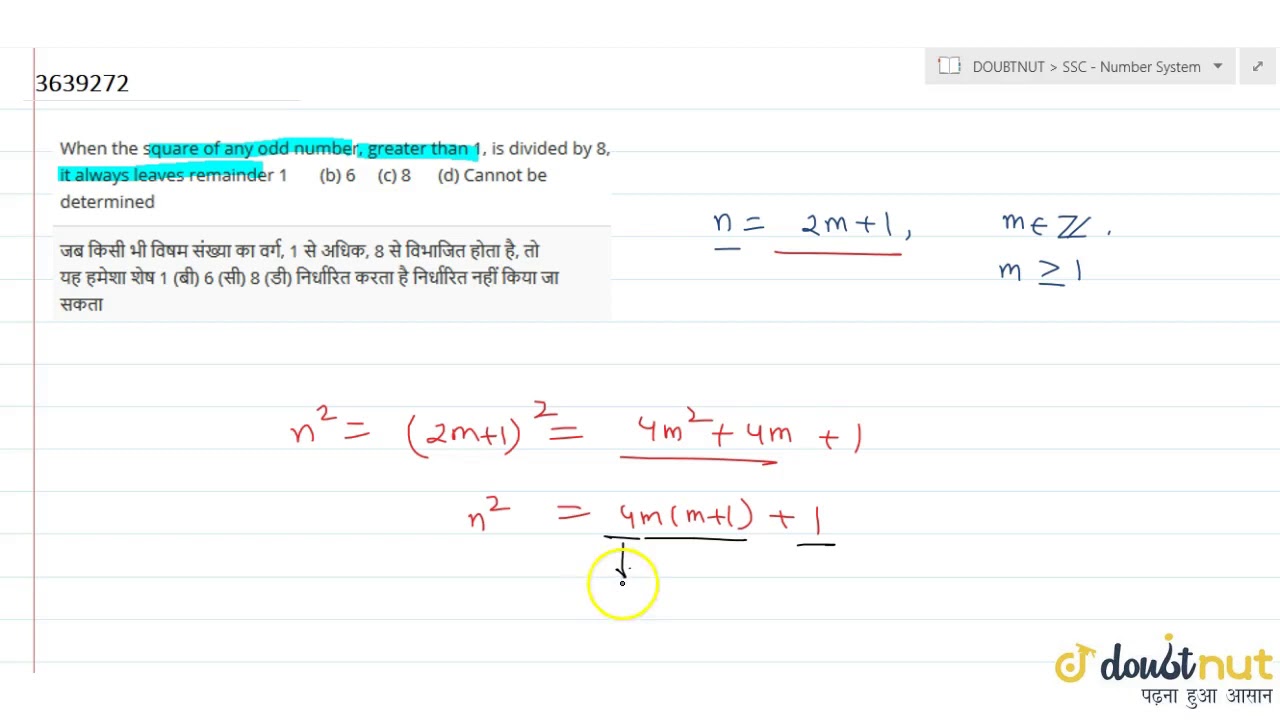 DOUBTNUT > SSC - Number System
3639272
When the square of any odd number, greater than 1, is divided by 8,
it always leaves remainder 1 (b) 6 (c) 8 (d) Cannot be
determined
जब किसी भी विषम संख्या का वर्ग, 1 से अधिक, 8 से विभाजित होता है, तो
यह हमेशा शेष 1 (बी) 6 (सी) 8 (डी) निर्धारित करता है निर्धारित नहीं किया जा
सकता
n = 2m+1, m∈ℤ.
m ≥ 1
n² = (2m+1)² = 4m² + 4m + 1
n² = 4m(m+1) + 1
doubtnut
पढ़ना हुआ आसान